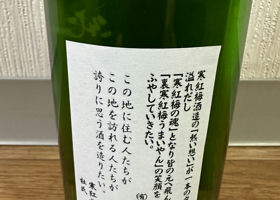 寒紅梅酒造の「熱い想い」が一本の
溢れだし
「寒紅梅の魂」となり皆の元へ飛ん
「裏寒紅梅うまいやん」の笑顔を
ふやしていきたい。
(有)
この地に住む人たちが
この地を訪れる人たちが
誇りに思う酒を造りたい。
寒紅
株式